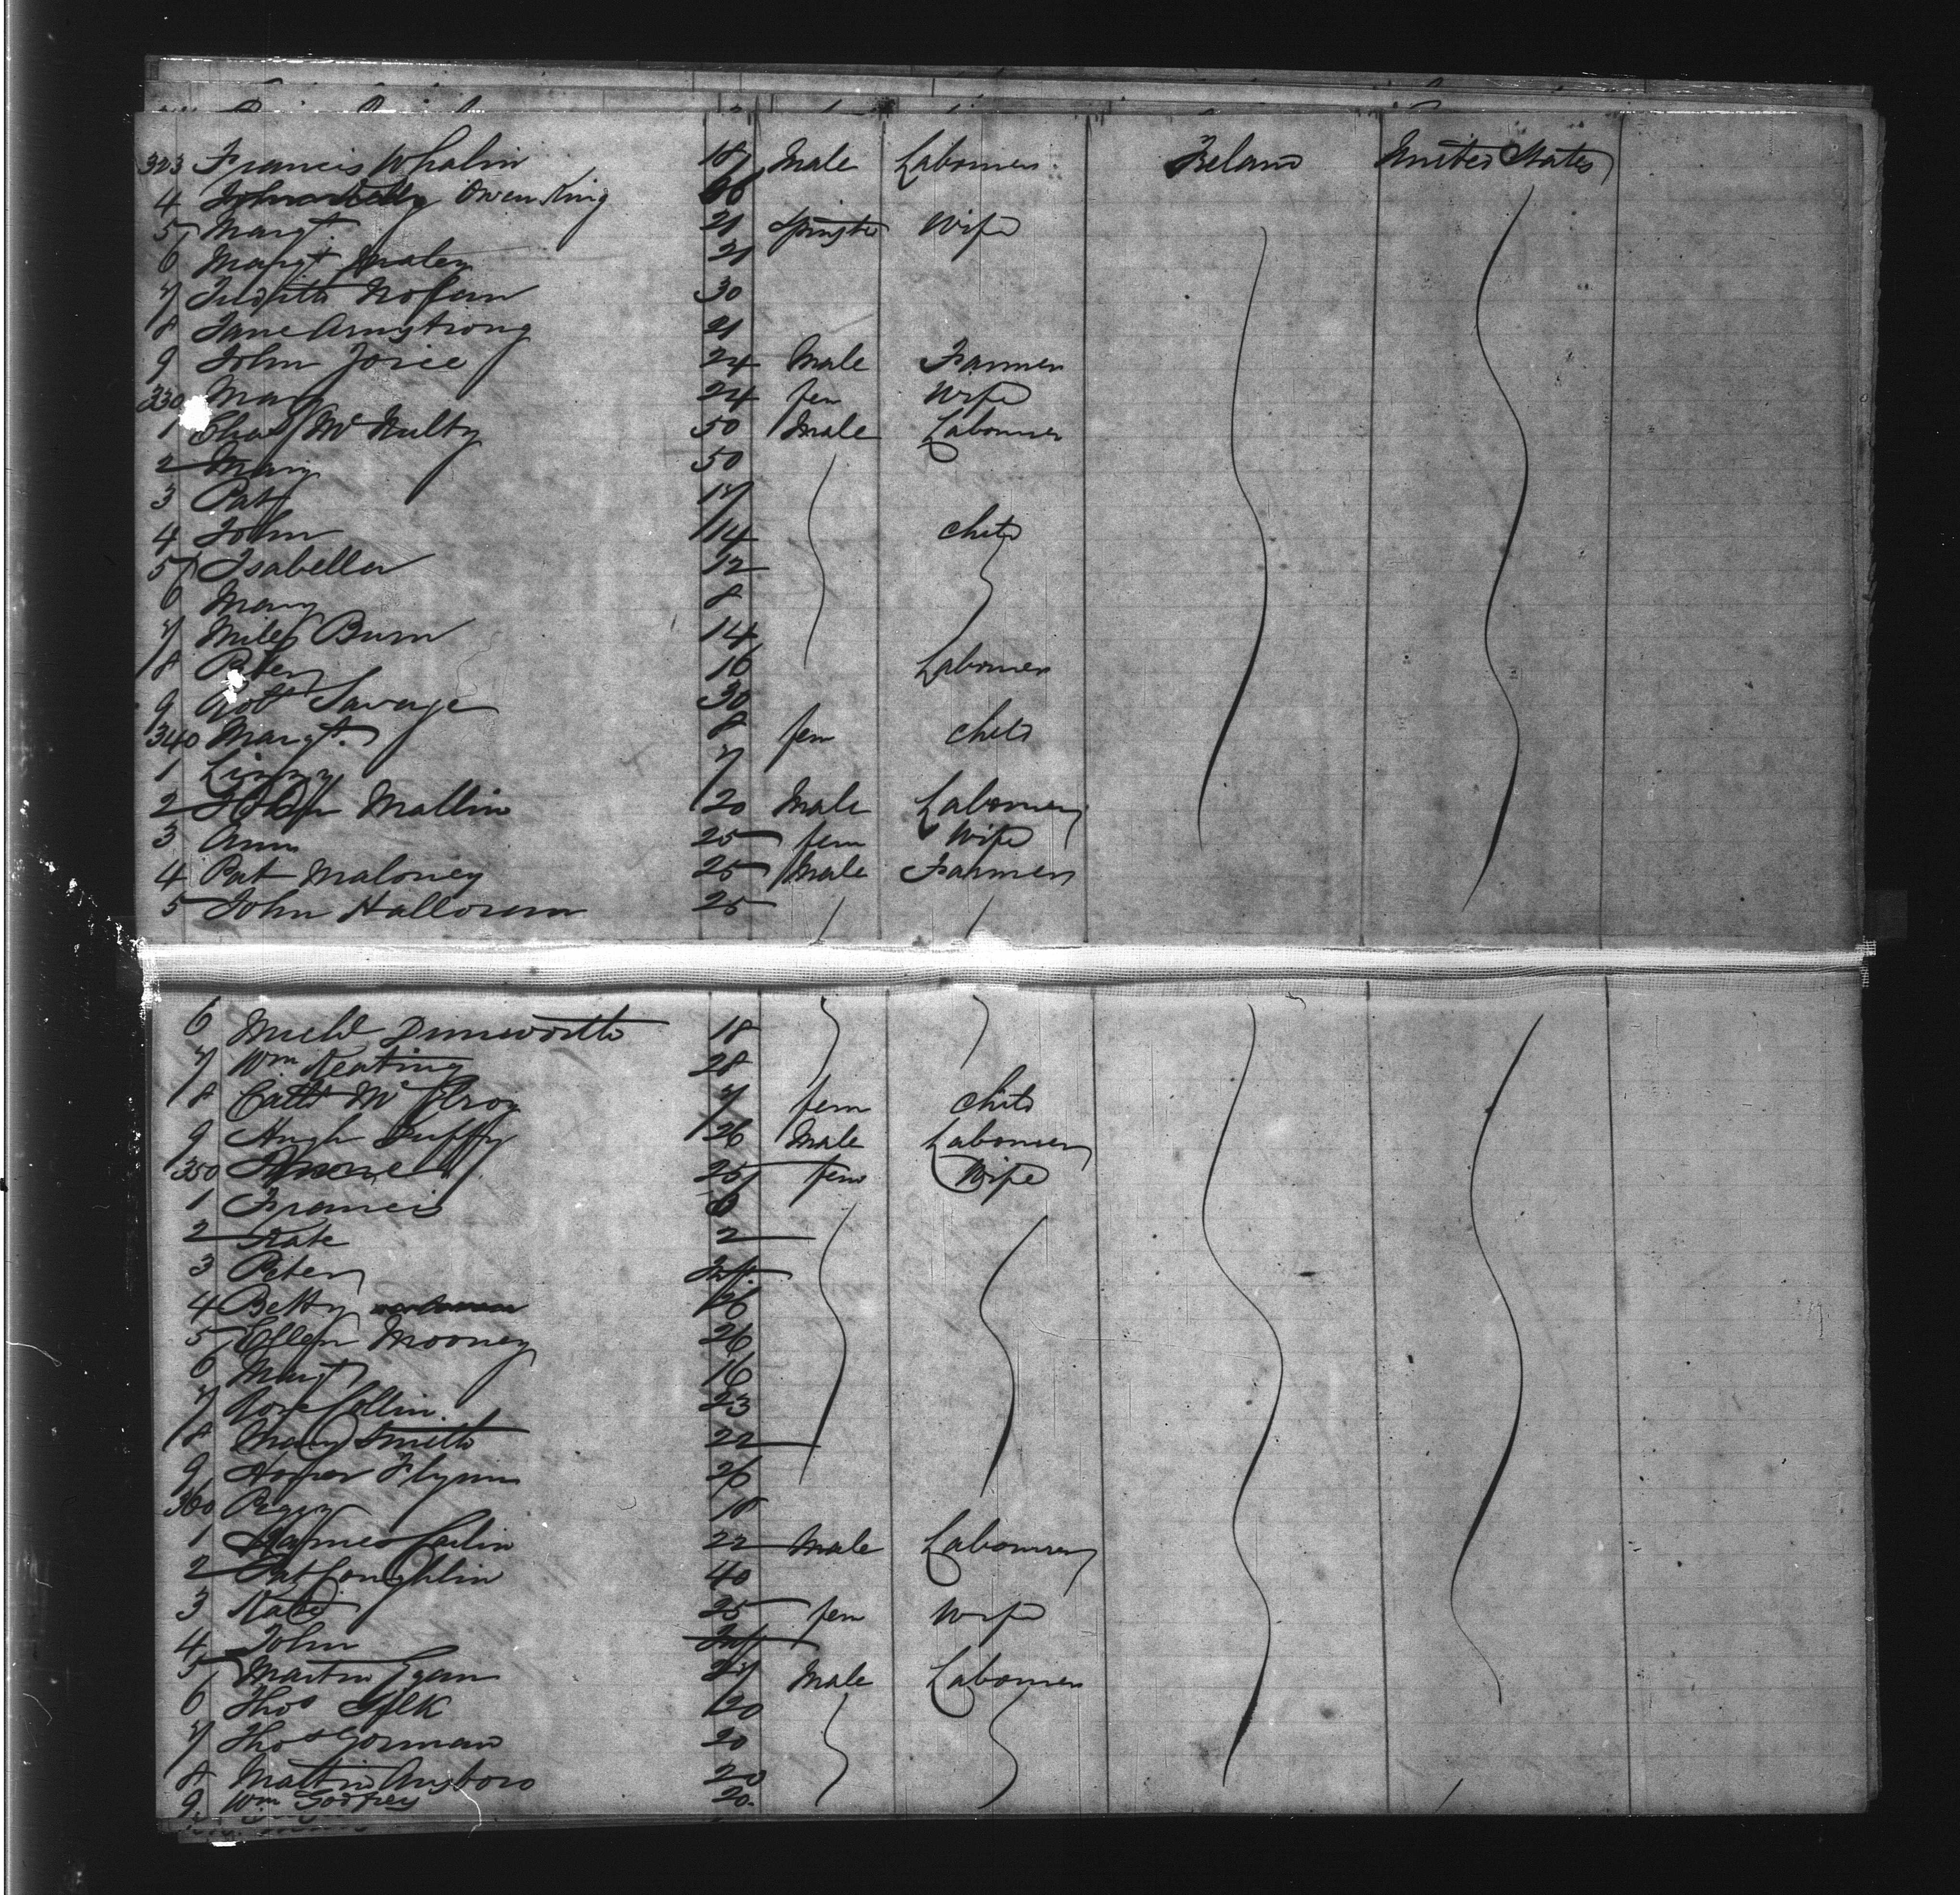 323 Francis Whalin 18 Male Labourer Ireland United States
4 Owen King
5 Margt 21 Spinster Wife
6 Margt 21
7 Judith Nolan 30
8 Jane Armstrong 21
9 John Joice 24 Male Farmer
330 Mary 24 fem Wife
1 Chas McNulty 50 Male Labourer
2 Mary 50
3 Pat 17
4 John 14 child
5 Isabella 12
6 Mary 8
7 Miles Burn 14
8 Peter 16 Labourer
9 Robt Savage 30
340 Margt. 8 fem child
1 Lizzy 7
2 Mallin 20 Male Labourer
3 Ann 25 fem Wife
4 Pat Maloney 25 Male Farmer
5 John Halloran 25
6 Michl Dunworth 18
7 Wm Keating 28
8 Cath McElroy 7 fem child
9 Hugh Duffy 26 Male Labourer
350 25 fem Wife
1 Francis 6
2 Kate 2
3 Peter Inft.
4 Betty
5 Ellen Mooney 26
6 Margt 16
7 Rose Collin 23
8 Mary Smith 22
9 Honor Flynn 26
360 Peggy 18
1 James Carlin 22 Male Labourer
2 Pat Coughlin 40
3 25 fem Wife
4 John Inf
5 Martin Egan 27 Male Labourer
6 Thos Silk 20
7 Thos Gorman 20
8 Martin 20
9 Wm Godfrey 20